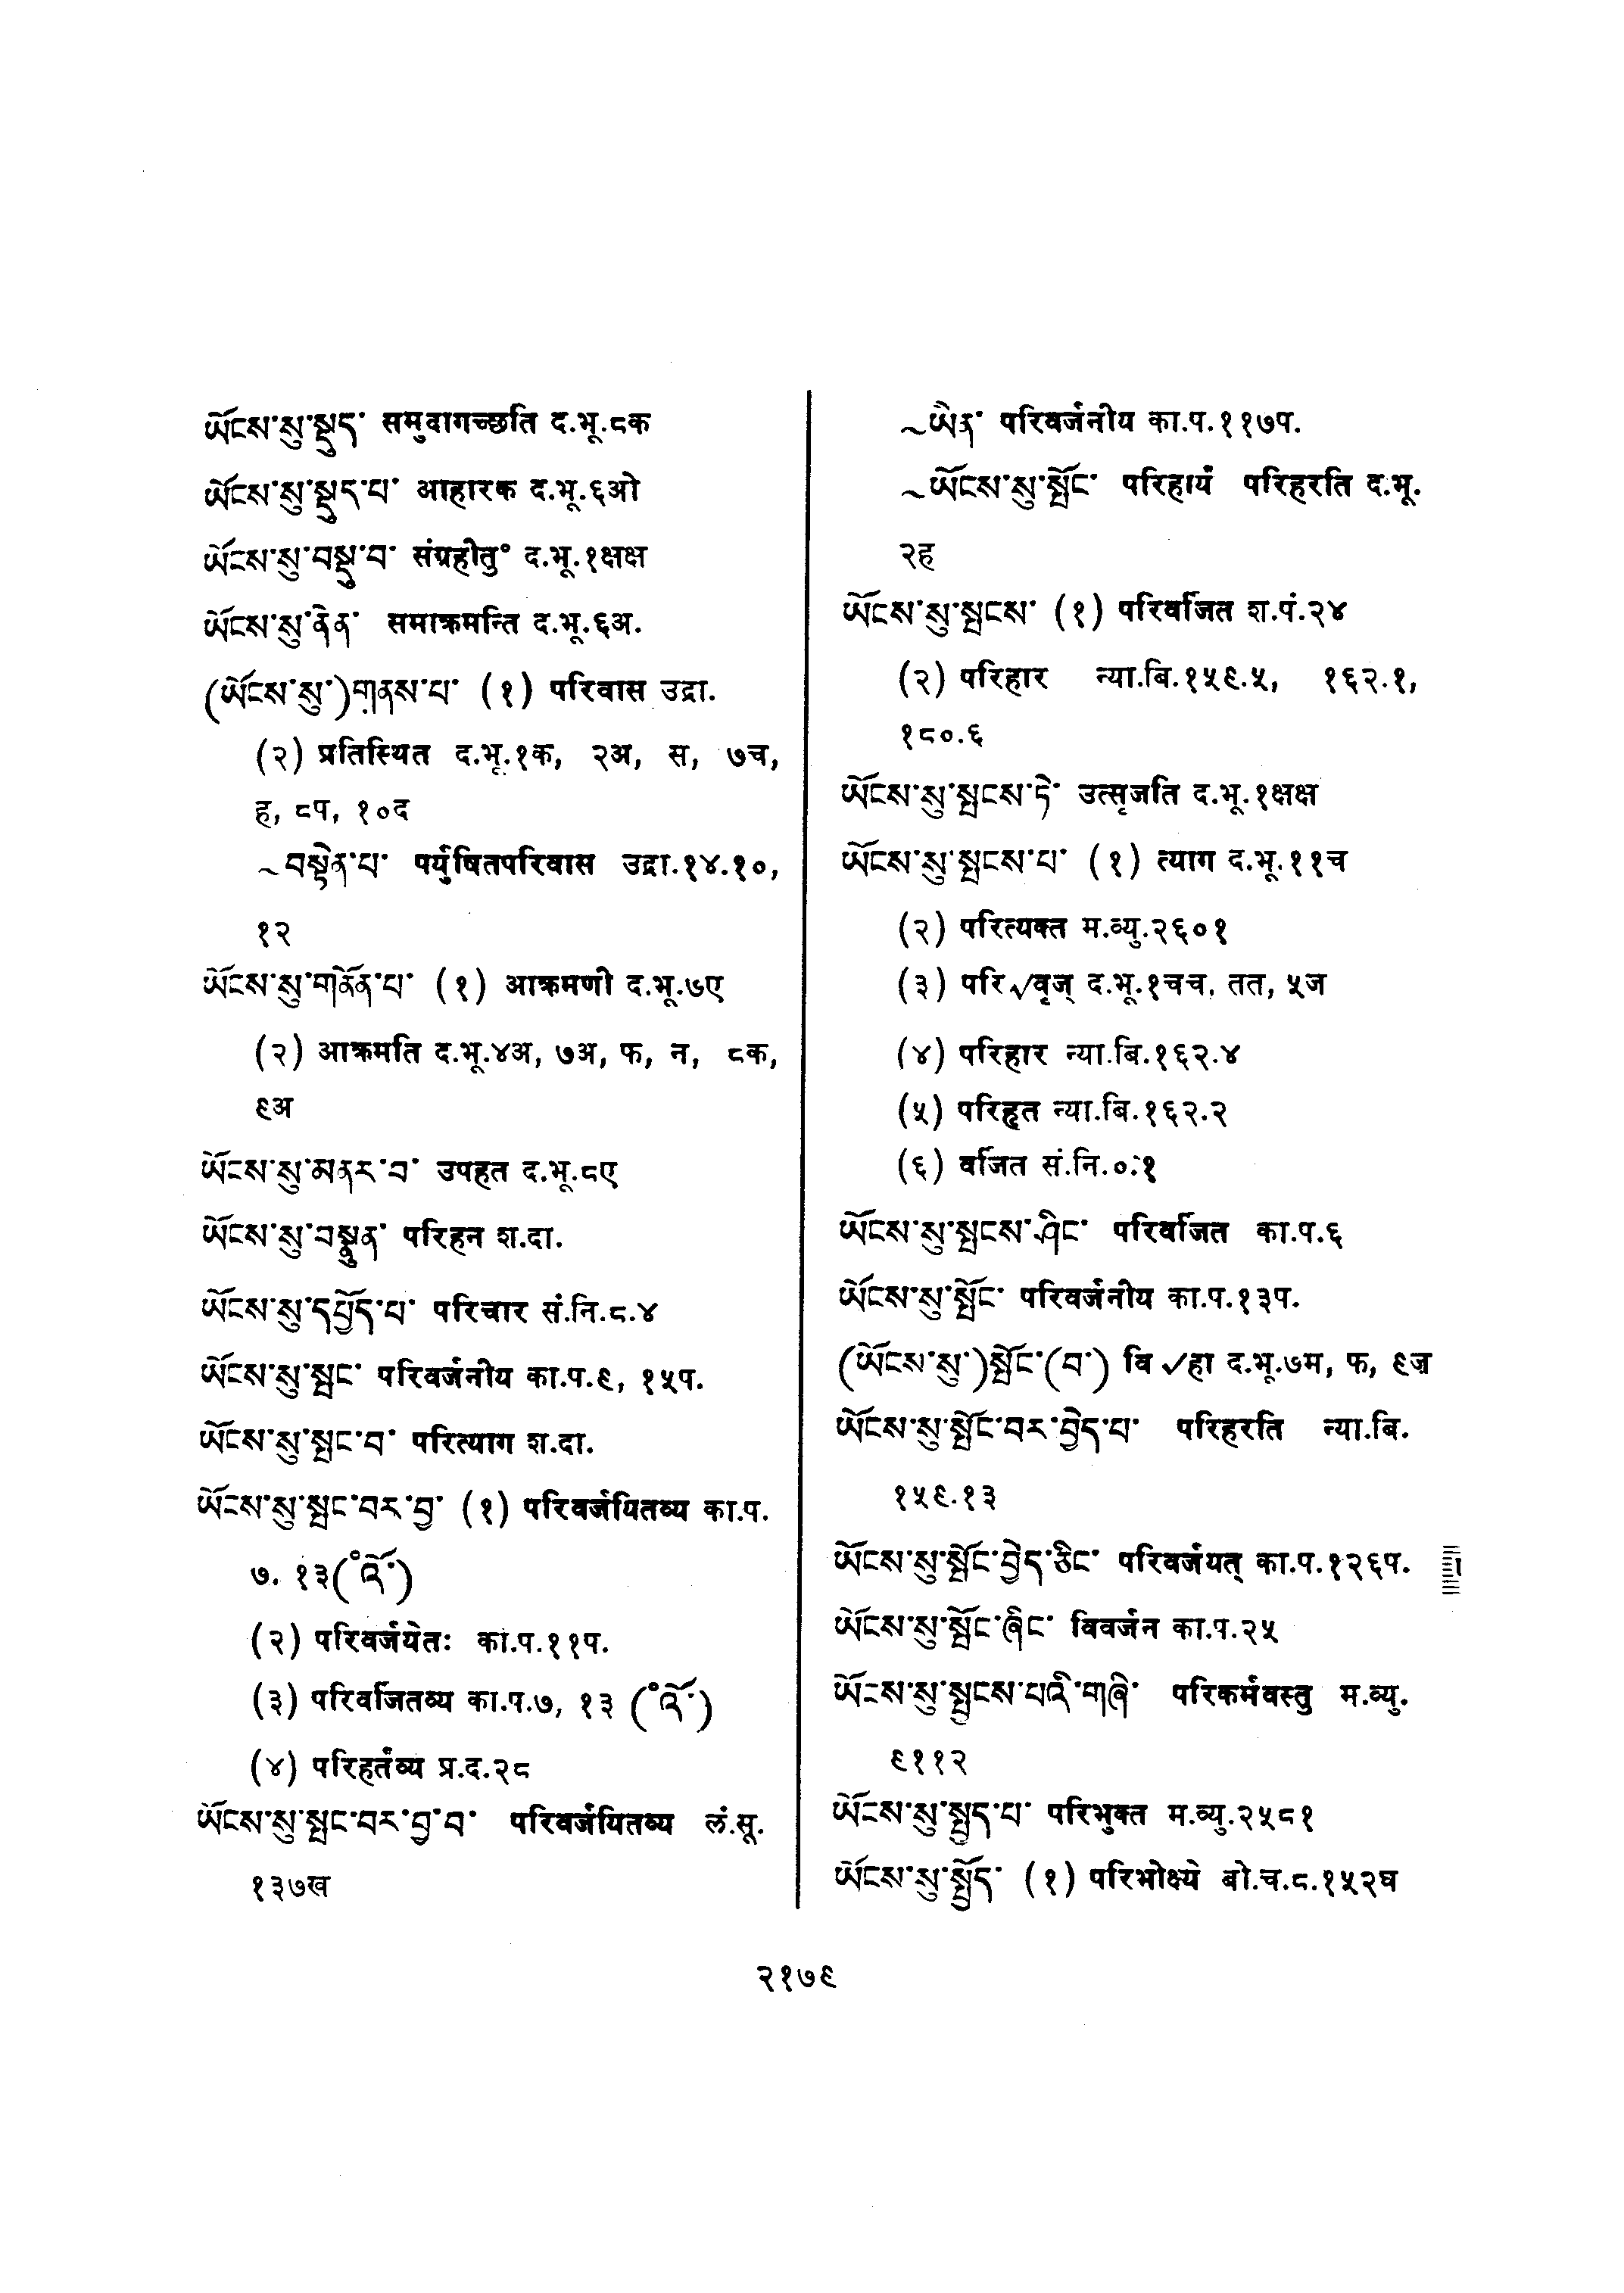 ཡོངས་སུ་སྡུད་ समुदागच्छति द.भू.८क
ཡོངས་སུ་སྡུད་པ་ आहारक द.भू.६ओ
ཡོངས་སུ་བསྡུ་བ་ संग्रहीतु° द.भू.१क्षक्ष
ཡོངས་སུ་ནེན་ समाक्रमन्ति द.भू.६अ.
(ཡོངས་སུ་)གནས་པ་ (१) परिवास उद्रा.
(२) प्रतिस्थित द.भू.१क, २अ, स, ७च,
ह, ८प, १०द
~བསྟེན་པ་ पर्युषितपरिवास उद्रा.१४.१०,
१२
ཡོངས་སུ་གནོན་པ་ (१) आक्रमणी द.भू.७ए
(२) आक्रमति द.भू.४अ, ७अ, फ, न, ८क,
९अ
ཡོངས་སུ་མནར་བ་ उपहत द.भू.८ए
ཡོངས་སུ་བསྣུན་ परिहन श.दा.
ཡོངས་སུ་དཔྱོད་པ་ परिचार सं.नि.८.४
ཡོངས་སུ་སྤང་ परिवर्जनीय का.प.९, १५प.
ཡོངས་སུ་སྤང་བ་ परित्याग श.दा.
ཡོངས་སུ་སྤང་བར་བྱ་ (१) परिवर्जयितव्य का.प.
७. १३(°འོ་)
(२) परिवर्जयेतः का.प.११प.
(३) परिवर्जितव्य का.प.७, १३ (°འོ་)
(४) परिहर्तव्य प्र.द.२८
ཡོངས་སུ་སྤང་བར་བྱ་བ་ परिवर्जयितव्य लं.सू.
१३७ख
~ཡིན་ परिवर्जनीय का.प.११७प.
~ཡོངས་སུ་སྤོང་ परिहार्यं परिहरति द.भू.
२ह
ཡོངས་སུ་སྤངས་ (१) परिवर्जित श.पं.२४
(२) परिहार न्या.बि.१५९.५, १६२.१,
१८०.६
ཡོངས་སུ་སྤངས་ཏེ་ उत्सृजति द.भू.१क्षक्ष
ཡོངས་སུ་སྤངས་པ་ (१) त्याग द.भू.११च
(२) परित्यक्त म.व्यु.२६०१
(३) परि√वृज् द.भू.१चच, तत, ५ज
(४) परिहार न्या.बि.१६२.४
(५) परिहृत न्या.बि.१६२.२
(६) वर्जित सं.नि.०ः१
ཡོངས་སུ་སྤངས་ཤིང་ परिवर्जित का.प.६
ཡོངས་སུ་སྤོང་ परिवर्जनीय का.प.१३प.
(ཡོངས་སུ་)སྤོང་(བ་) वि√हा द.भू.७म, फ, ९ज
ཡོངས་སུ་སྤོང་བར་བྱེད་པ་ परिहरति न्या.बि.
१५९.१३
ཡོངས་སུ་སྤོང་བྱེད་ཅིང་ परिवर्जयत् का.प.१२६प.
ཡོངས་སུ་སྤོང་ཞིང་ विवर्जन का.प.२५
ཡོངས་སུ་སྤྱངས་པའི་གཞི་ परिकर्मवस्तु म.व्यु.
९११२
ཡོངས་སུ་སྤྱད་པ་ परिभुक्त म.व्यु.२५८१
ཡོངས་སུ་སྤྱོད་ (१) परिभोक्ष्ये बो.च.८.१५२घ
२१७९